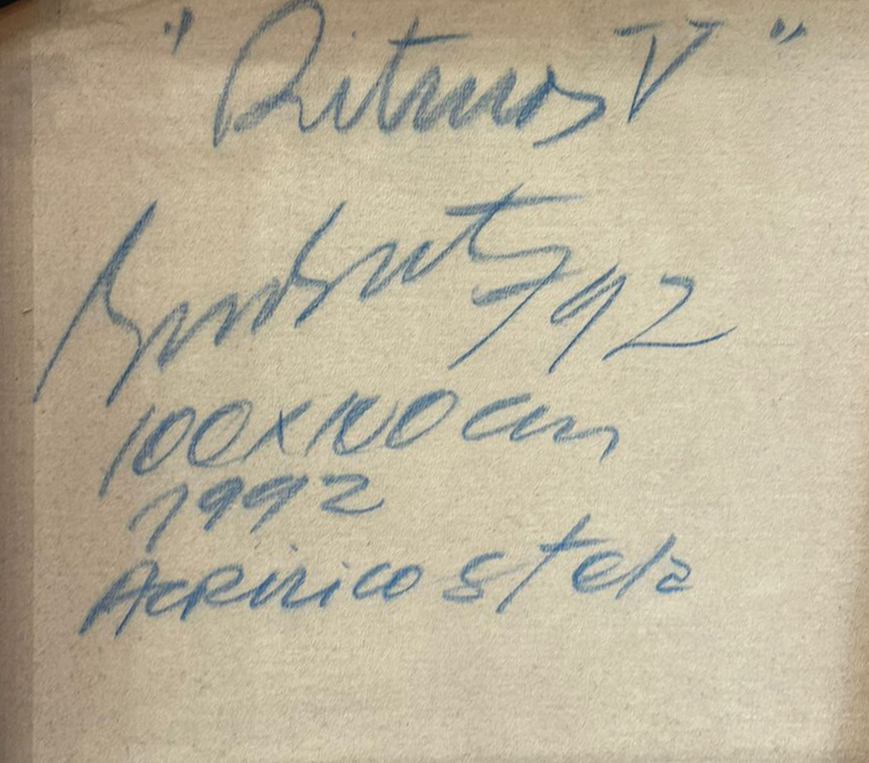 "Ritmos V"
92
100x100 cm
1992
Acrílico s/tela